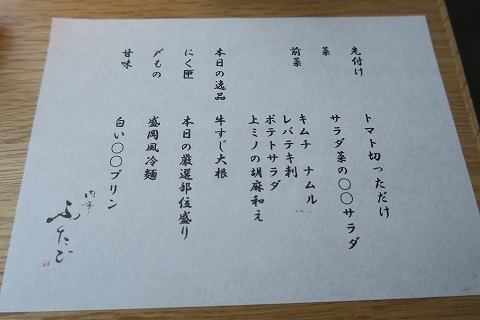 先付け
トマト切っただけ
菜
サラダ菜の〇〇サラダ
前菜
キムチ ナムル
レバテキ刺
ポテトサラダ
上ミノの胡麻和え
本日の逸品
牛すじ大根
にく匠
本日の厳選部位盛り
〆もの
盛岡風冷麺
甘味
白い〇〇プリン
肉亭
ふたご